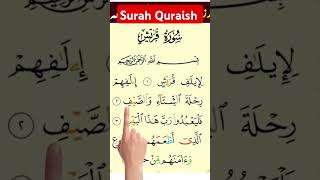 Surah Quraish
سُورَةُ قُرَيْشٍ
بِسْمِ اللَّهِ الرَّحْمَٰنِ الرَّحِيمِ
لِإِيلَٰفِ قُرَيْشٍ ١ إِۦلَٰفِهِمْ
رِحْلَةَ الشِّتَآءِ وَالصَّيْفِ ٢
فَلْيَعْبُدُوا۟ رَبَّ هَٰذَا الْبَيْتِ ٣
الَّذِىٓ أَطْعَمَهُم
وَءَامَنَهُم مِّنْ